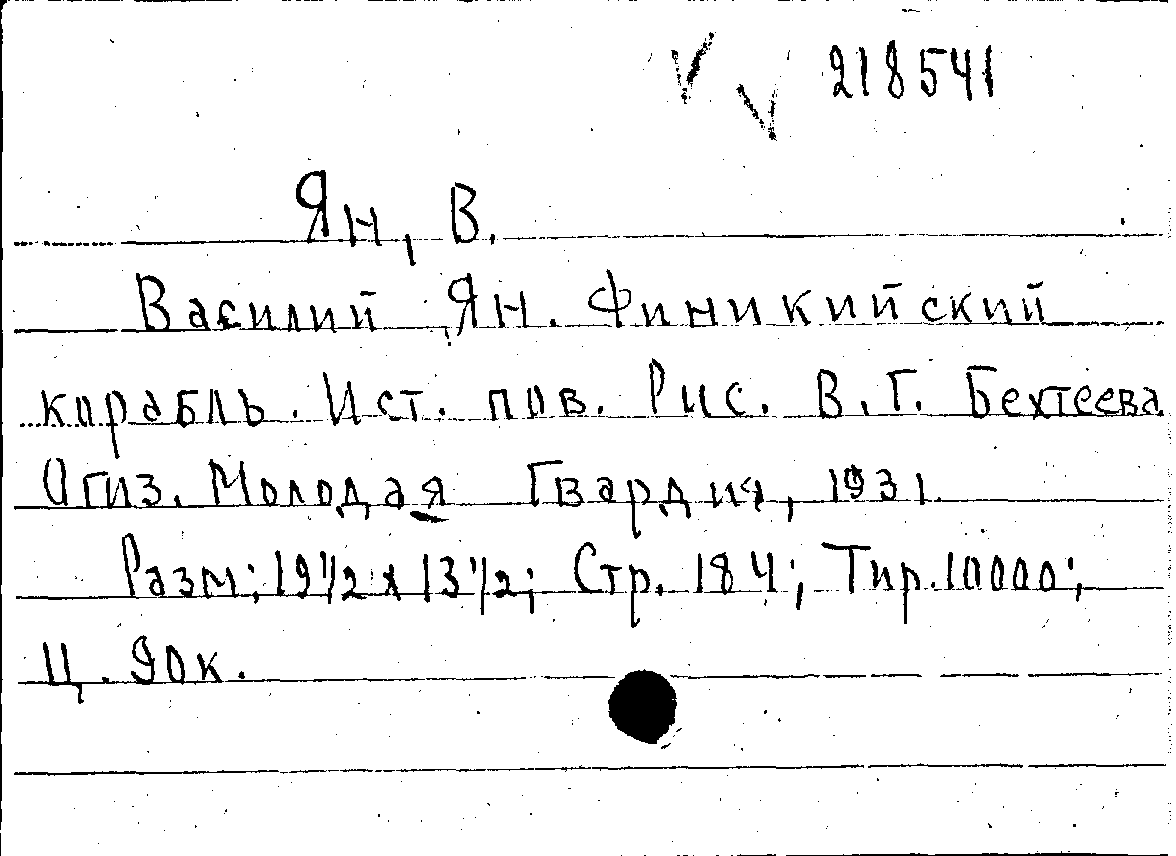 218541
Ян, В.
Василий Ян. Финикийский
корабль. Ист. пов. Рис. В. Г. Бехтеева
Огиз. Молодая Гвардия, 1931.
Разм: 19 1/2 x 13 1/2; Стр. 184; Тир. 10000;
Ц. 90к.